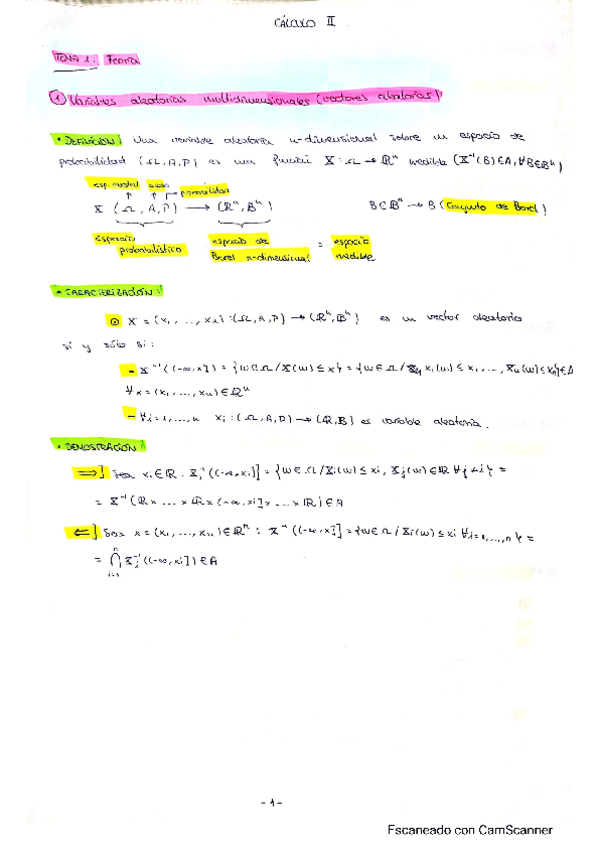 CÁLCULO II
TEMA 1: Teoría
① Variables aleatorias multidimensionales (vectores aleatorios)
• DEFINICIÓN: Una variable aleatoria n-dimensional sobre un espacio de
probabilidad (Ω, A, P) es una función X: Ω → ℝⁿ medible (X⁻¹(B) ∈ A, ∀B ∈ Bⁿ)
esp. muestral probabilidad
X (Ω, A, P) → (ℝⁿ, Bⁿ) B ∈ Bⁿ → B (Conjunto de Borel)
espacio probabilístico espacio de Borel n-dimensional = espacio medible
• CARACTERIZACIÓN:
X = (x₁, ..., xₙ): (Ω, A, P) → (ℝⁿ, Bⁿ) es un vector aleatorio
si y sólo si:
- X⁻¹((-∞, x]) = {w ∈ Ω / X(w) ≤ x} = {w ∈ Ω / X₁(w) ≤ x₁, ..., Xₙ(w) ≤ xₙ} ∈ A
∀x = (x₁, ..., xₙ) ∈ ℝⁿ
- ∀i = 1, ..., n xᵢ: (Ω, A, P) → (ℝ, B) es variable aleatoria.
• DEMOSTRACIÓN:
⇒] Sea xᵢ ∈ ℝ. Xᵢ⁻¹((-∞, xᵢ]] = {w ∈ Ω / Xᵢ(w) ≤ xᵢ, Xⱼ(w) ∈ ℝ ∀j ≠ i} =
= X⁻¹(ℝ x ... x ℝ x (-∞, xᵢ] x ... x ℝ) ∈ A
⇐] Sea x = (x₁, ..., xₙ) ∈ ℝⁿ: X⁻¹((-∞, x] = {w ∈ Ω / Xᵢ(w) ≤ xᵢ ∀i = 1, ..., n} =
= ⋂ⁿᵢ₌₁ Xᵢ⁻¹((-∞, xᵢ]) ∈ A
- 1 -
Escaneado con CamScanner